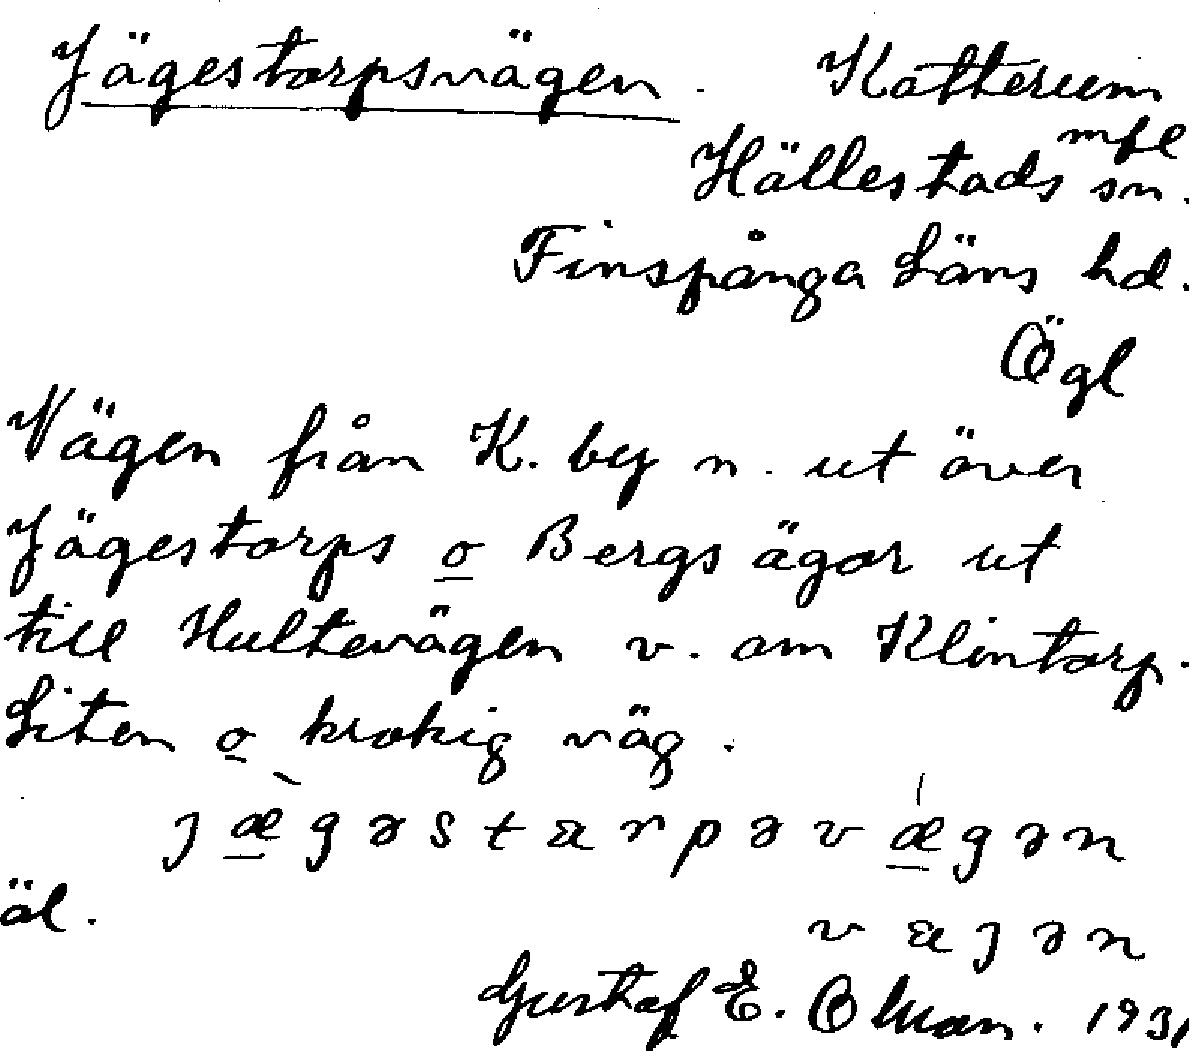 Jägestorpsvägen. Katterum
mfl
Hällestads sn.
Finspånga Läns hd.
Ögl
Vägen från K. by n. ut över
Jägestorps o Bergs ägor ut
till Hultevägen v. om Klintorp.
Liten o krokig väg.
jægəstarpəvægən
äl.
vajən
Gustaf E. Ohman. 1931